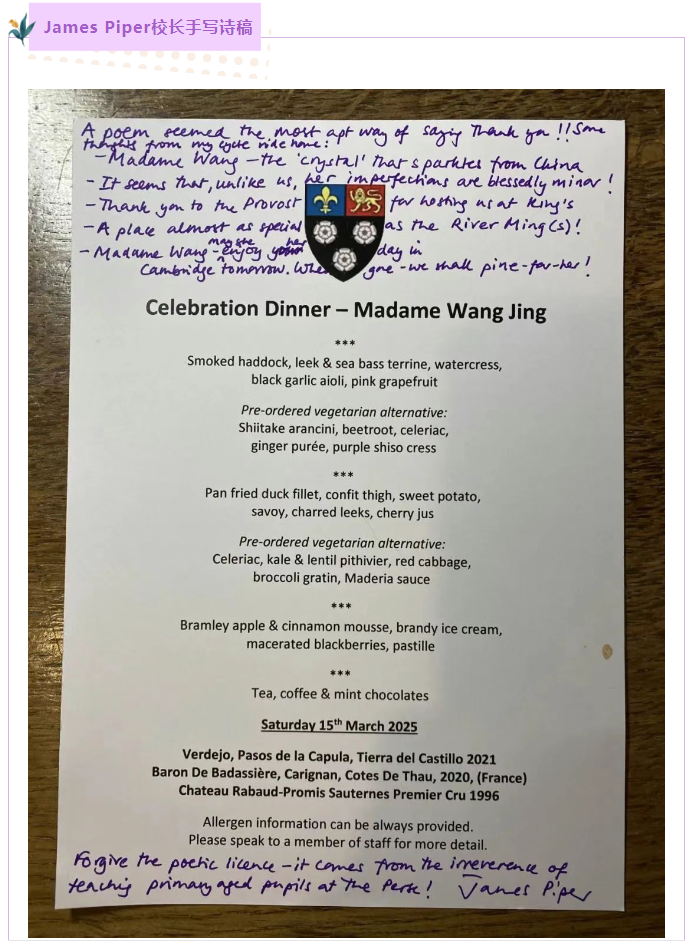 James Piper校长手写诗稿
A poem seemed the most apt way of saying Thank you!! Some
thoughts from my cycle ride home:
- Madame Wang - the 'crystal' that sparkles from China
- It seems that, unlike us, her imperfections are blessedly minor!
- Thank you to the Provost for hosting us at King's
- A place almost as special as the River Ming(s)!
- Madame Wang - may she enjoy her day in
Cambridge tomorrow. When gone - we shall pine-for-her!
Celebration Dinner – Madame Wang Jing
***
Smoked haddock, leek & sea bass terrine, watercress,
black garlic aioli, pink grapefruit
Pre-ordered vegetarian alternative:
Shiitake arancini, beetroot, celeriac,
ginger purée, purple shiso cress
***
Pan fried duck fillet, confit thigh, sweet potato,
savoy, charred leeks, cherry jus
Pre-ordered vegetarian alternative:
Celeriac, kale & lentil pithivier, red cabbage,
broccoli gratin, Maderia sauce
***
Bramley apple & cinnamon mousse, brandy ice cream,
macerated blackberries, pastille
***
Tea, coffee & mint chocolates
Saturday 15th March 2025
Verdejo, Pasos de la Capula, Tierra del Castillo 2021
Baron De Badassière, Carignan, Cotes De Thau, 2020, (France)
Chateau Rabaud-Promis Sauternes Premier Cru 1996
Allergen information can be always provided.
Please speak to a member of staff for more detail.
Forgive the poetic licence - it comes from the irreverence of
teaching primary aged pupils at The Perse! James Piper